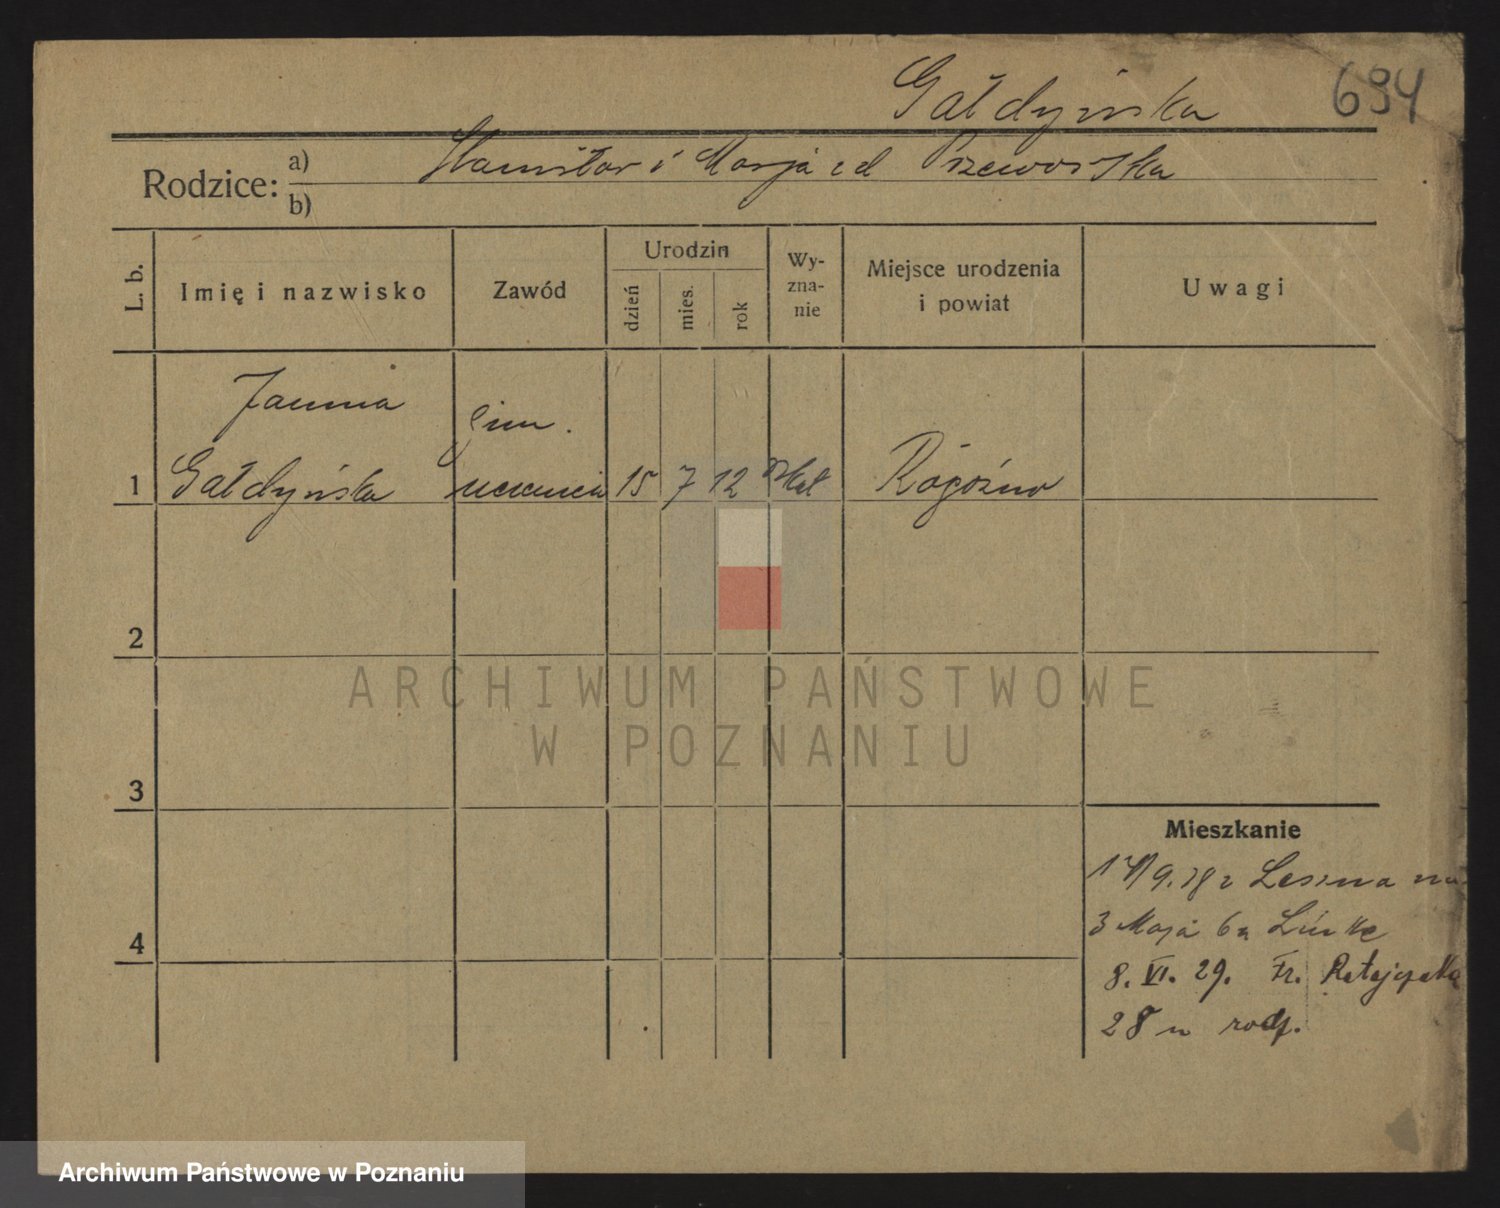 Gałdyńska 694
Rodzice: a) Stanisław i Marja z d Przeworska
b)
L. b. Imię i nazwisko Zawód Urodzin dzień mies. rok Wy-zna-nie Miejsce urodzenia i powiat Uwagi
Janina gim.
1 Gałdyńska uczenica 15 7 12 rzkat Rogoźno
2
ARCHIWUM PAŃSTWOWE
W POZNANIU
3
Mieszkanie
9.28 z Leszna na
3 Maja 6a Linke
4
8. VI. 29. Fr. Ratajczaka
28 u rodz.
Archiwum Państwowe w Poznaniu